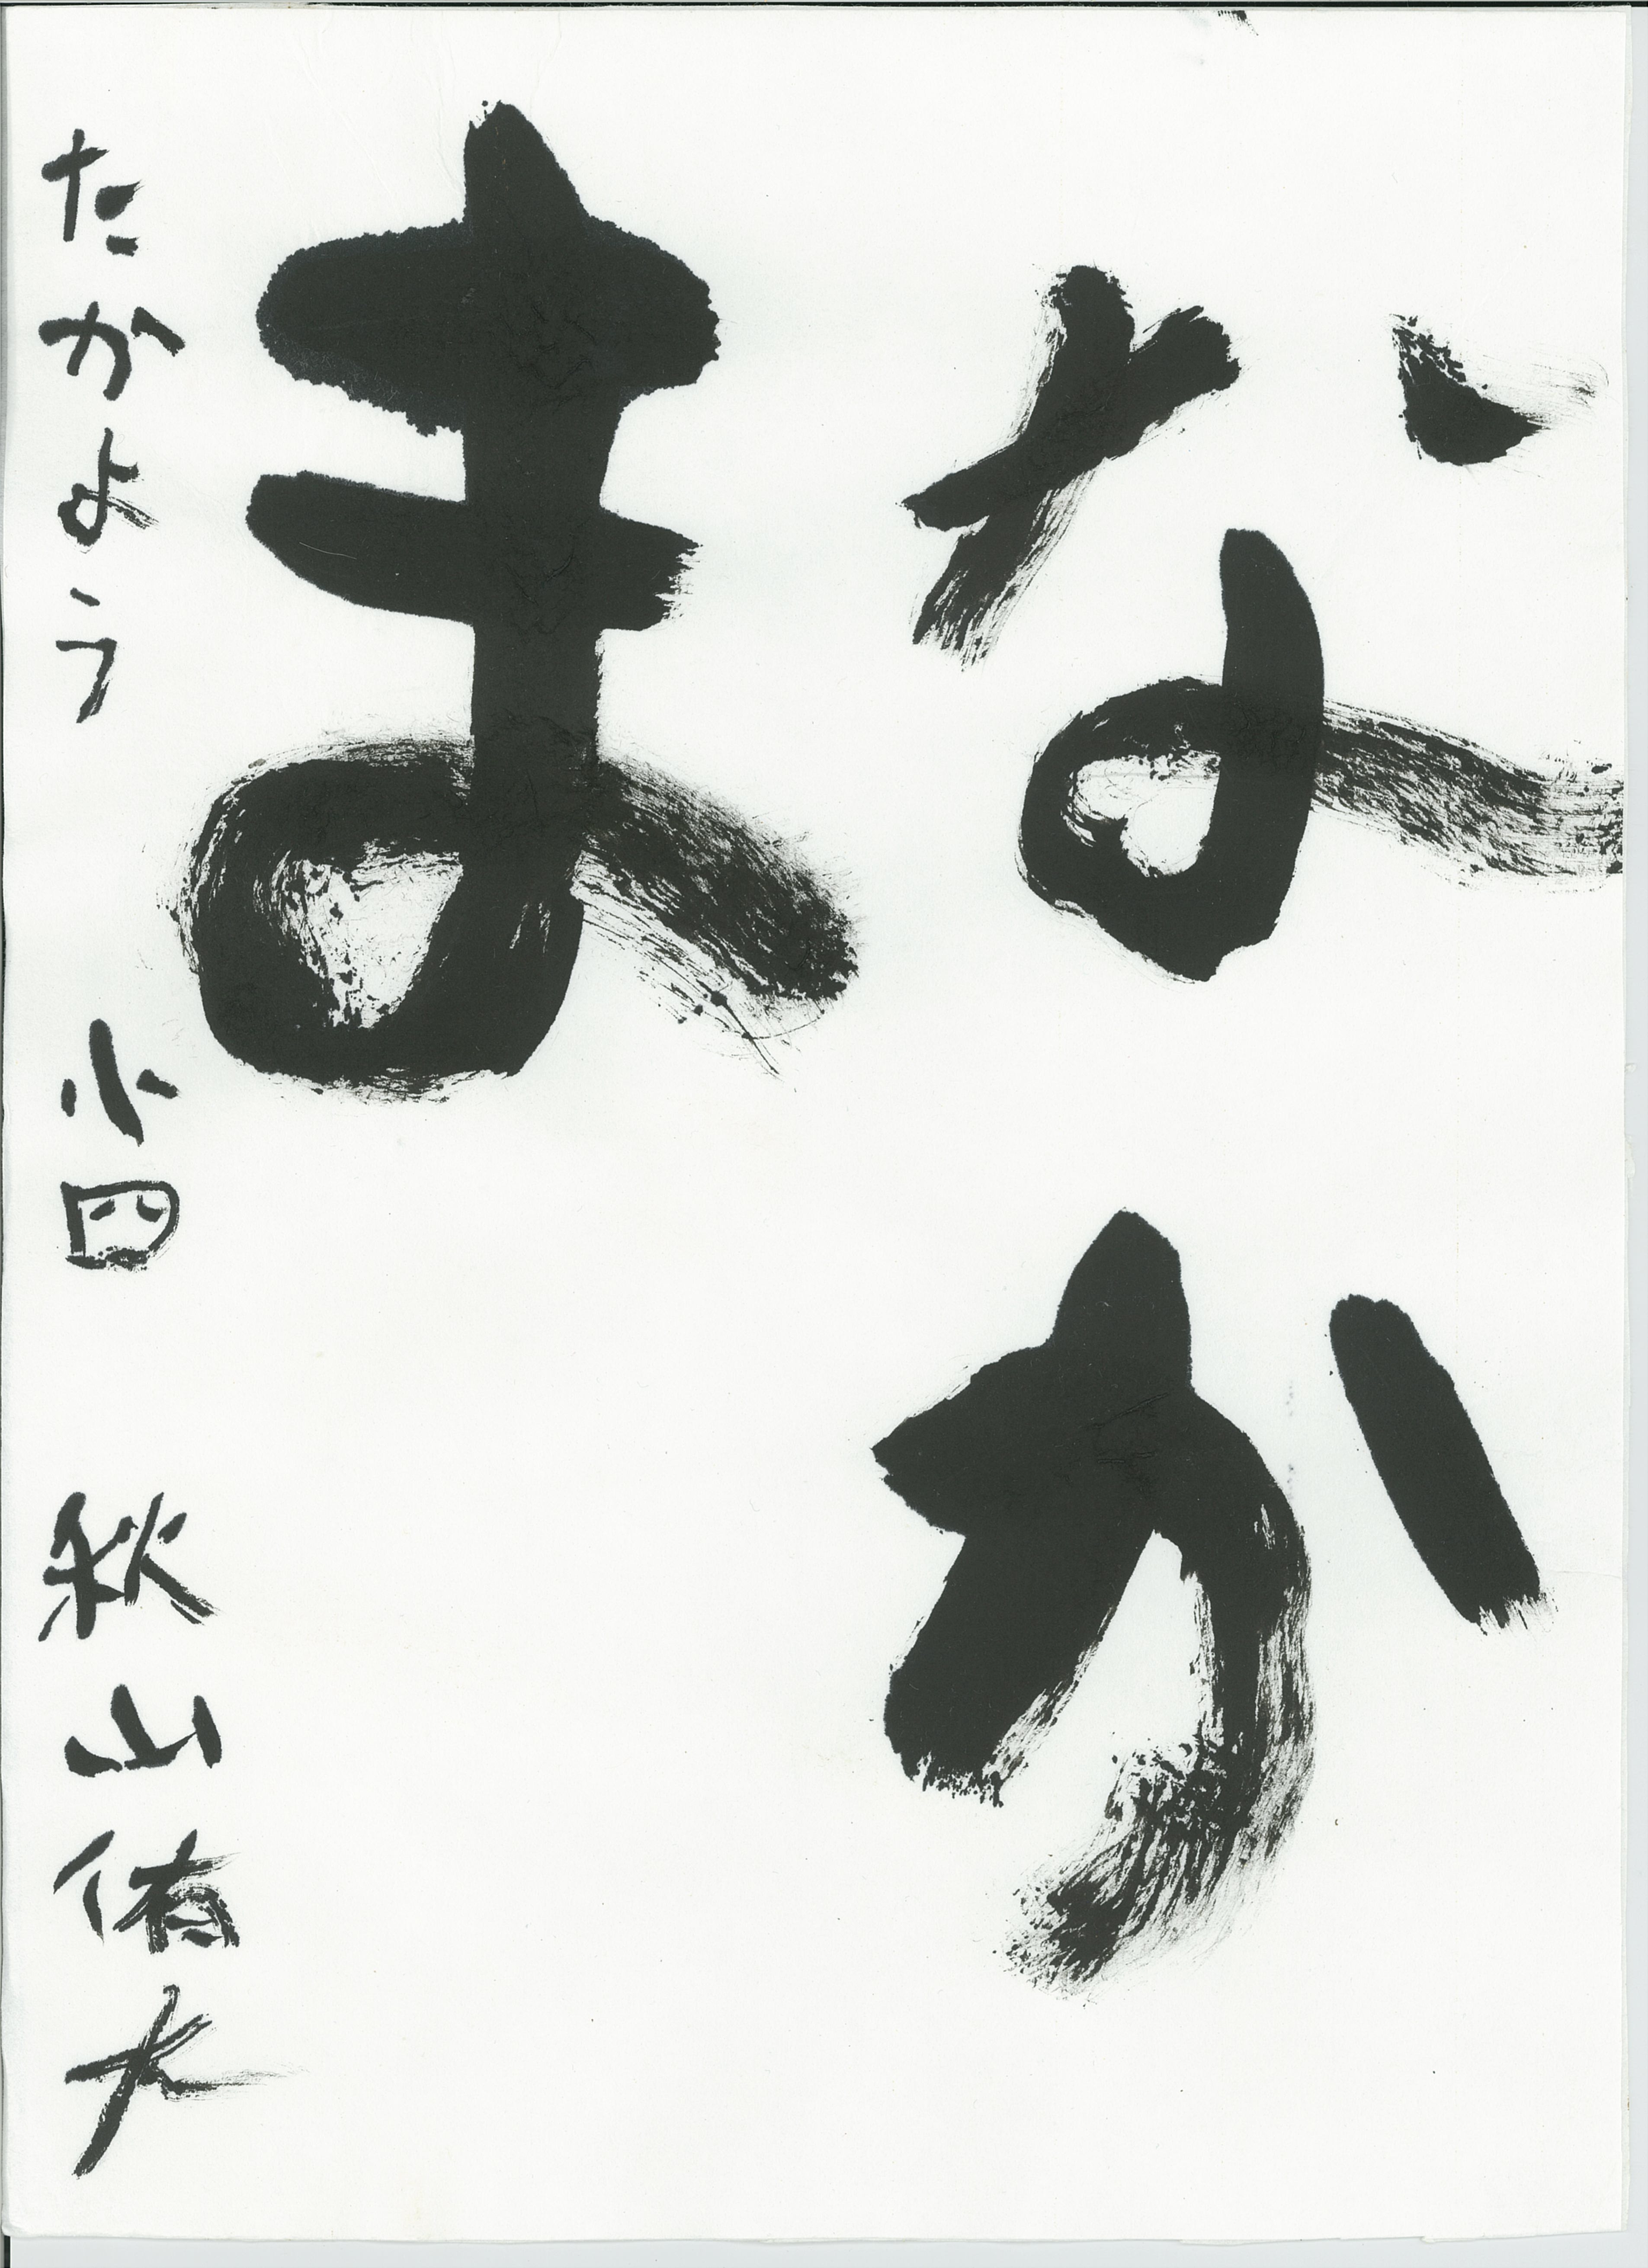 なか
ま
たかよう 小四 秋山侑大